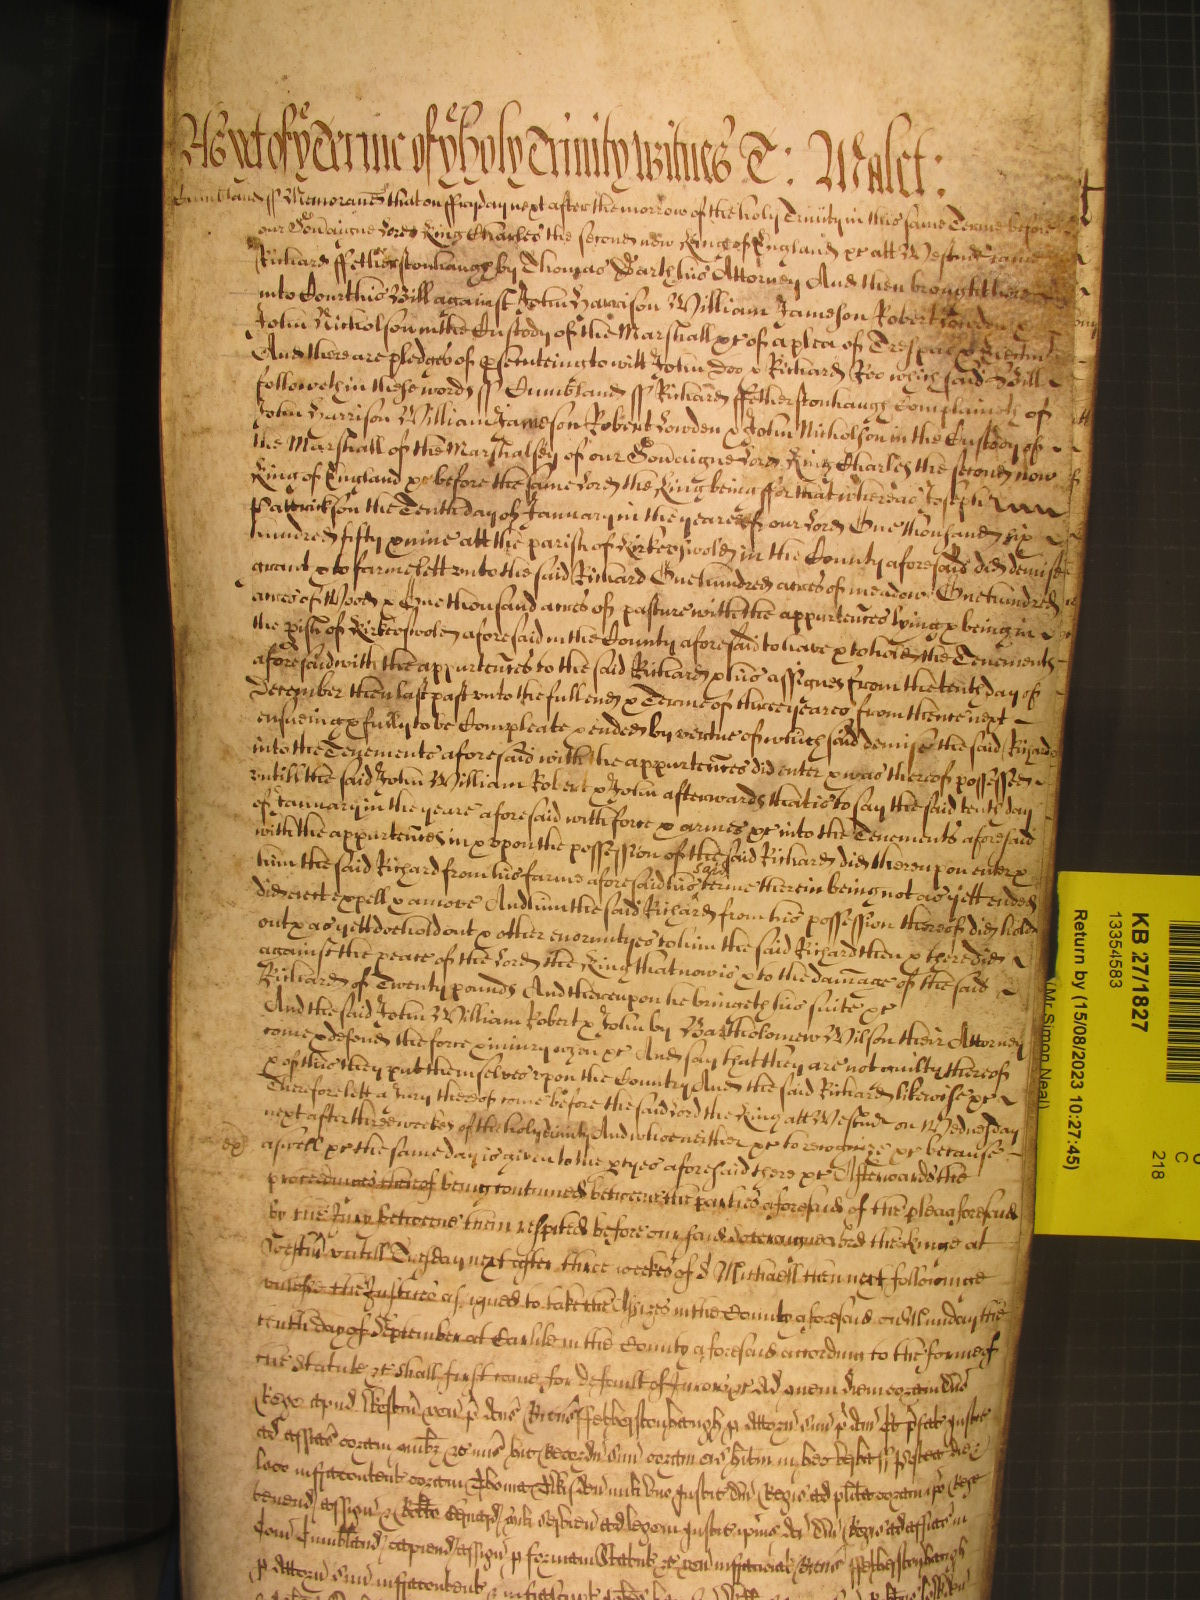 As yet of ye Terme of ye holy Trinity Witnes T: Malet:
Cumbland ss Memorand that on ffryday next after the morrow of the holy Trinity in this same Terme before
our Soveraigne Lord King Charles the second now King of England &c att Westmr came
Richard ffetherstonhaugh by Thomas Barth his Attorney And then brought here
into Court his Bill against John Harrison William Jameson Robert Lowden &
John Nicholson in the Custody of the Marshall &c of a plea of Trespas & Eiectmt
And there are pledges of psecuteing to witt John Doo & Richard Roo which said Bill
followeth in these words ss Cumbland ss Richard ffetherstonhaugh Complaineth of
John Harrison William Jameson Robert Lowden & John Nicholson in the Custody of
the Marshall of the Marshalsey of our Soveraigne Lord King Charles the second now
King of England &c before the same Lord the King being ffor that whereas Joseph
Pattrickson the Tenth day of January in the yeare of our Lord One thousand six
hundred fifty & nine att the parish of Kirkeoswold in the County aforesaid did demise
grant & to farme lett unto the said Richard One hundred acres of meadow One hundred
acres of Wood & One thousand acres of pasture with the appurtences lying & being in
the pish of Kirkeoswold aforesaid in the County aforesaid to have & to hold the Tenements
aforesaid with the appurtences to the said Richard & his assignes from the tenth day of
December then last past unto the full end & Terme of three yeares from thence next
ensueing & fully to be Compleate & ended by vertue of which said demise the said Richard
into the Tenements aforesaid with the appurtences did enter & was thereof possessed
untill the said John William Robert & John afterwards that is to say the said tenth day
of January in the yeare aforesaid with force & armes &c into the Tenements aforesaid
with the appurtences in & upon the possession of the said Richard did thereupon enter &
him the said Richard from his farme aforesaid his said terme therein being not as yett ended
did eiect expell & amove And him the said Richard from his possession thereof did hold
out & as yett doe hold out & other enormityes to him the said Richard then & there did
against the peace of the Lord the King that now is & to the damage of the said
Richard of Twenty pounds And thereupon he bringeth his suite &c
And the said John William Robert & John by Bartholomew Wilson their Attorney
come & defend the force & iniury when &c And say that they are not guilty thereof
& of this they put themselves upon the Country And the said Richard likewise &c
Therefore lett a Jury thereof come before the said Lord the King att Westmr on Wednesday
next after three weekes of the holy Trinity And who neither &c to recognize &c because
aswell &c the same day is given to the ptyes aforesaid there &c Afterwards the
proceedings thereof being continued betweene the parties aforesaid of the plea aforesaid
by the Jury betweene them respited before our said Soveraigne Lord the Kinge at
Westmr untill Tuesday next after three weekes of St Michaell then next followinge
unlesse the Justices assigned to take the Assizes in the County aforesaid on Munday the
tenth day of September at Carlile in the County aforesaid according to the forme of
the Statute &c shall first come for default of Jurors &c Ad quem diem coram Dno
Rege apud Westm ven p dcus Ricus ffetherstonhaugh p Attorn suu p dcm Et pfat Justic
ad assisas coram quibz &c mis hic Record suu coram eis hitm in hec verba ss Postea die &
loco infracontent coram Thoma
tenend assign &
Com Cumbland capiend assign p formam Statut &c ven infranoiat Ricus ffetherstonhaugh
p Attorn suu infracontent &
KB 27/1827
13354583
Return by (15/08/2023 10:27:45)
(Mr Simon Neal)
C
218